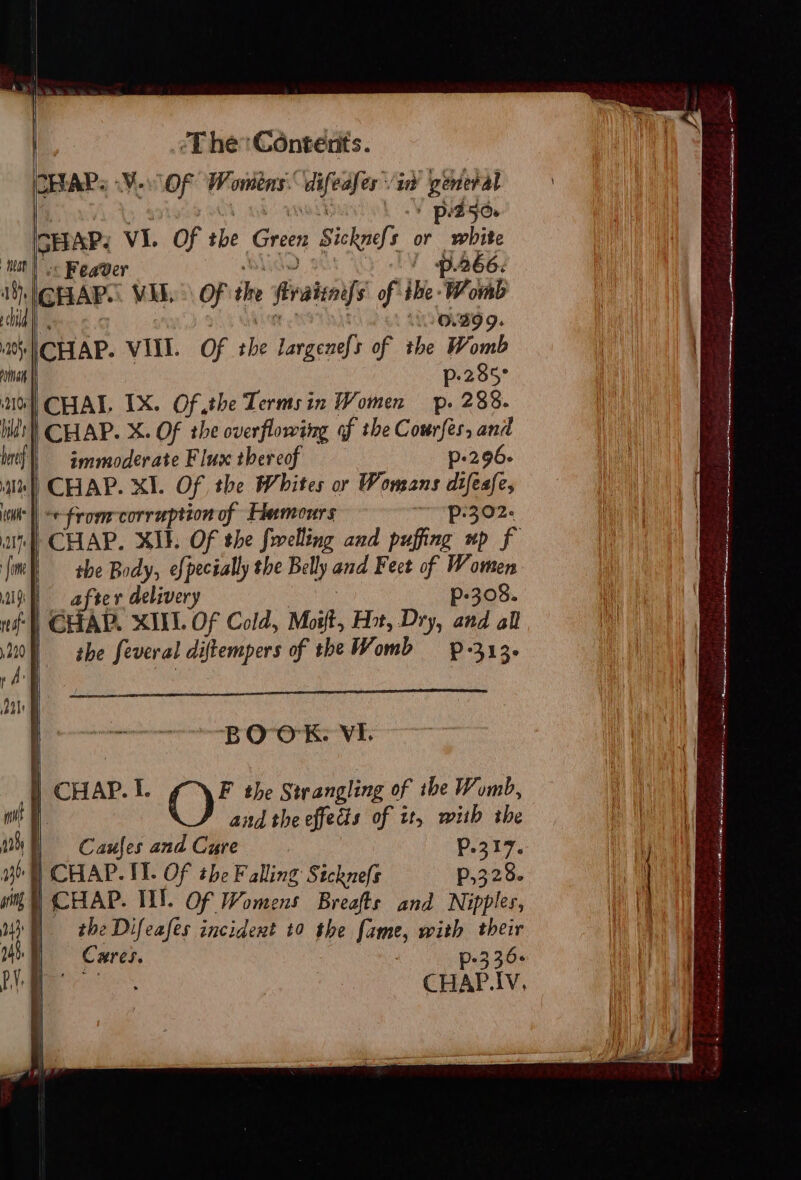 The Contents.
CHAP. V. Of Womens difeafes in general
p.250.
CHAP. VI. Of the Green Sicknefs or white
Feaver p.266.
CHAP. VII. Of the ftraitnefs of the Womb
CHAP. VIII. Of the largenefs of the Womb
p.285°
CHAP. IX. Of the Terms in Women p. 288.
CHAP. X. Of the overflowing of the Courfes, and
immoderate Flux thereof p.296.
CHAP. XI. Of the Whites or Womans difeafe,
from corruption of Humours p.302.
CHAP. XII. Of the fwelling and puffing up f
the Body, efpecially the Belly and Feet of Women
after delivery p.308.
CHAP. XIII. Of Cold, Moift, Hot, Dry, and all
the feveral diftempers of the Womb p.313.
BOOK. VI.
CHAP. I. OF the Strangling of the Womb,
and the effects of it, with the
Caufes and Cure p.317.
CHAP. II. Of the Falling Sicknefs p,328.
CHAP. III. Of Womens Breafts and Nipples,
the Difeafes incident to the fame, with their
Cures. p.336.
CHAP.IV,